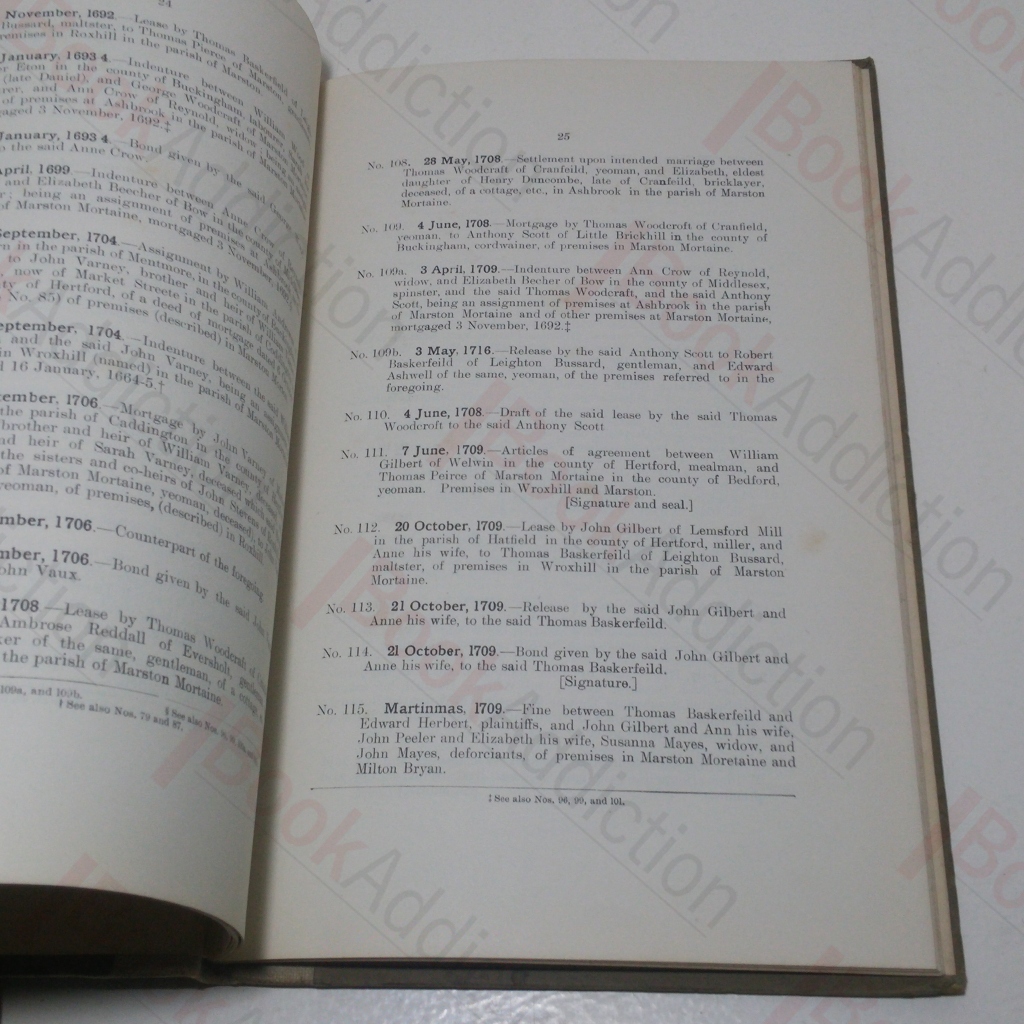 24
November, 1692 Lease by Thomas Baskerfeild of
Bussard, maltster, to Thomas Pierce of Marston,
premises in Roxhill in the parish of Marston.
January, 1693 4.—Indenture between William
Eton in the county of Buckingham,
(late Daniel), and George Woodcraft of
and Ann Crow of Reynold, widow
of premises at Ashbrook in the parish of Mars
gaged 3 November, 1692.‡
January, 1693 4.—Bond given by the said George
o the said Anne Crow
April, 1699.—Indenture between Anne Crow
and Elizabeth Beecher of Bow in the county of
; being an assignment of premises at
of Marston Mortaine, mortgaged 3 November,
September, 1704.—Assignment by William
rn in the parish of Mentmore, in the county of
to John Varney, brother and heir of
now of Market Streete in the parish of
ty of Hertford, of a deed of mortgage dated
No. 85) of premises (described) in Marston
eptember, 1704.—Indenture between the said
and the said John Varney, being an
in Wroxhill (named) in the parish of Marston
d 16 January, 1664-5.†
tember, 1706.—Mortgage by John Varney
the parish of Caddington in the county of
brother and heir of William Varney, deceased
nd heir of Sarah Varney, deceased, which
the sisters and co-heirs of John Stevens
of Marston Mortaine, yeoman, deceased, to John
yeoman, of premises, (described) in Roxhill
mber, 1706.—Counterpart of the foregoing.
mber, 1706.—Bond given by the said John
ohn Vaux.
1708 —Lease by Thomas Woodcraft of
Ambrose Reddall of Eversholt, gentleman
ker of the same, gentleman, of a cottage
the parish of Marston Mortaine.
109a, and 109b.
§ See also Nos.
† See also Nos. 79 and 87.
25
No. 108. 28 May, 1708.—Settlement upon intended marriage between
Thomas Woodcraft of Cranfeild, yeoman, and Elizabeth, eldest
daughter of Henry Duncombe, late of Cranfeild, bricklayer,
deceased, of a cottage, etc., in Ashbrook in the parish of Marston
Mortaine.
No. 109. 4 June, 1708.—Mortgage by Thomas Woodcroft of Cranfield,
yeoman, to Anthony Scott of Little Brickhill in the county of
Buckingham, cordwainer, of premises in Marston Mortaine.
No. 109a. 3 April, 1709.—Indenture between Ann Crow of Reynold,
widow, and Elizabeth Becher of Bow in the county of Middlesex,
spinster, and the said Thomas Woodcraft, and the said Anthony
Scott, being an assignment of premises at Ashbrook in the parish
of Marston Mortaine and of other premises at Marston Mortaine,
mortgaged 3 November, 1692.‡
No. 109b. 3 May, 1716.—Release by the said Anthony Scott to Robert
Baskerfeild of Leighton Bussard, gentleman, and Edward
Ashwell of the same, yeoman, of the premises referred to in the
foregoing.
No. 110. 4 June, 1708.—Draft of the said lease by the said Thomas
Woodcroft to the said Anthony Scott
No. 111. 7 June, 1709.—Articles of agreement between William
Gilbert of Welwin in the county of Hertford, mealman, and
Thomas Peirce of Marston Mortaine in the county of Bedford,
yeoman. Premises in Wroxhill and Marston.
[Signature and seal.]
No. 112. 20 October, 1709.—Lease by John Gilbert of Lemsford Mill
in the parish of Hatfield in the county of Hertford, miller, and
Anne his wife, to Thomas Baskerfeild of Leighton Bussard,
maltster, of premises in Wroxhill in the parish of Marston
Mortaine.
No. 113. 21 October, 1709.—Release by the said John Gilbert and
Anne his wife, to the said Thomas Baskerfeild.
No. 114. 21 October, 1709.—Bond given by the said John Gilbert and
Anne his wife, to the said Thomas Baskerfeild.
[Signature.]
No. 115. Martinmas, 1709.—Fine between Thomas Baskerfeild and
Edward Herbert, plaintiffs, and John Gilbert and Ann his wife,
John Peeler and Elizabeth his wife, Susanna Mayes, widow, and
John Mayes, deforciants, of premises in Marston Moretaine and
Milton Bryan.
‡ See also Nos. 96, 99, and 101.
BookAddiction